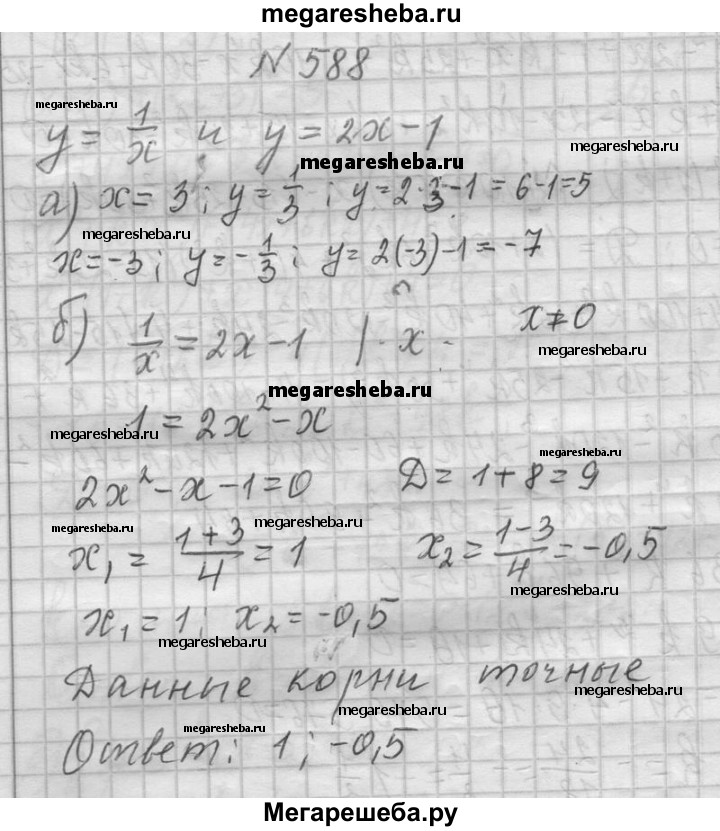 megaresheba.ru
№ 588
megaresheba.ru
y = 1/x и y = 2x - 1
megaresheba.ru
megaresheba.ru
а) x = 3; y = 1/3; y = 2·3 - 1 = 6 - 1 = 5
megaresheba.ru
x = -3; y = -1/3; y = 2(-3) - 1 = -7
б) 1/x = 2x - 1 | · x x ≠ 0
megaresheba.ru
megaresheba.ru
1 = 2x² - x
megaresheba.ru
megaresheba.ru
2x² - x - 1 = 0 D = 1 + 8 = 9
megaresheba.ru
megaresheba.ru
x₁ = (1 + 3)/4 = 1 x₂ = (1 - 3)/4 = -0,5
megaresheba.ru
x₁ = 1; x₂ = -0,5
megaresheba.ru
Данные корни точные
megaresheba.ru
megaresheba.ru
megaresheba.ru
Ответ: 1; -0,5
megaresheba.ru
Мегарешеба.ру